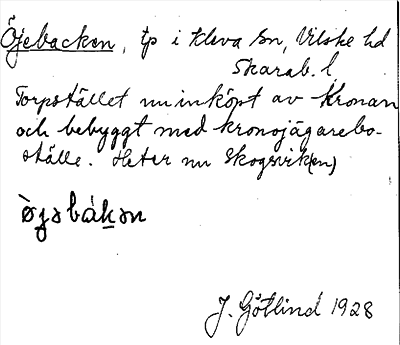 Öjebacken, tp i Kleva sn, Vilske hd
Skarab. l
Torpstället nu inköpt av Kronan
och bebyggt med kronojägarebo-
ställe. Heter nu Skogsvik(en)
ò̀jəbák̲ən
J. Götlind 1928